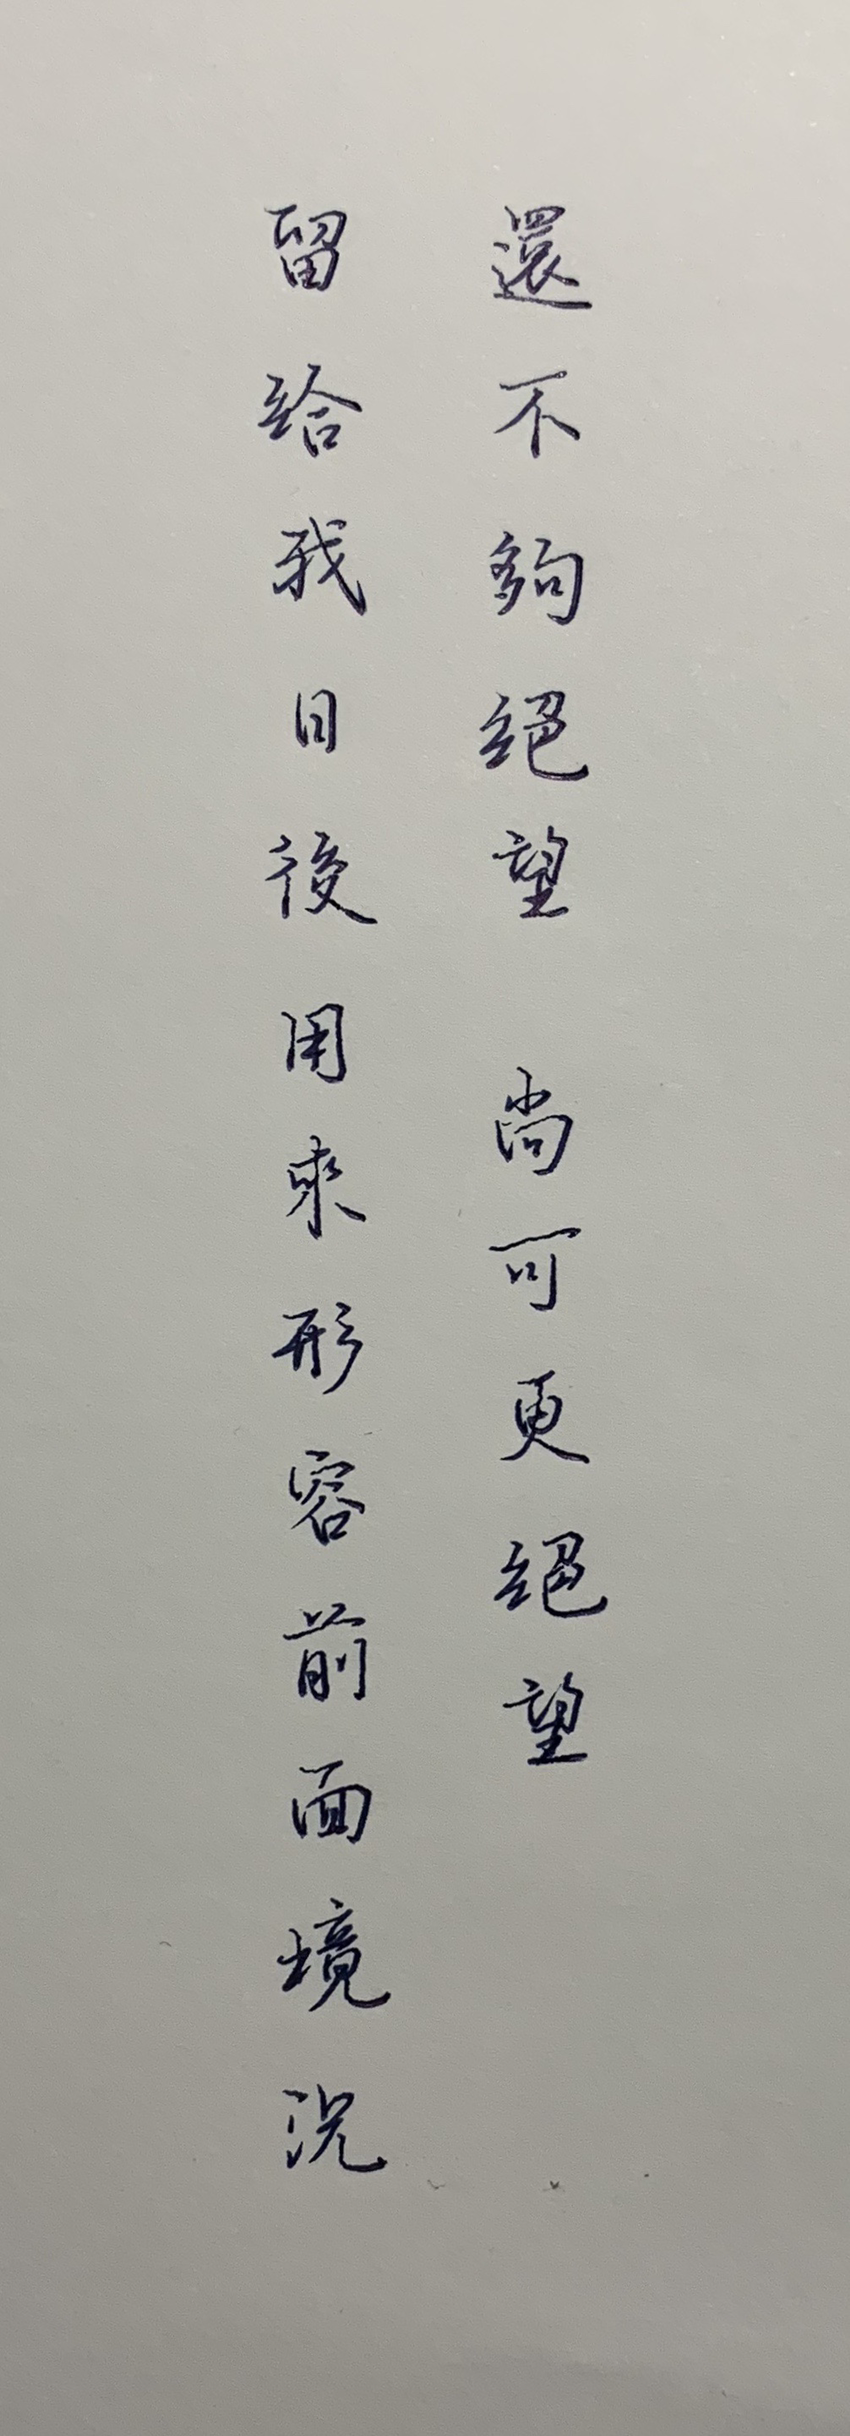 還不夠絕望 尚可更絕望
留給我日後用來形容前面境況